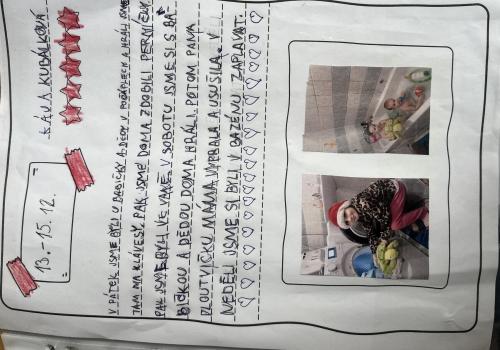 13.-15.12.
KÁJA KUBALKOVÁ
V PÁTEK JSME BYLI U BABIČKY A DĚDY V POČÁPLECH A HRÁLI JSME
TAM NA KLÁVESY. PAK JSME DOMA ZDOBILI PERNÍČKY.
PAK JSME BYLI VE VANĚ. V SOBOTU JSME SI S BA-
BIČKOU A DĚDOU DOMA HRÁLI. POTOM PANA
PLOUTVIČKU MAMA VYPRALA A USUŠILA. V
NEDĚLI JSME SI BYLI V BAZÉNU ZAPLAVAT.